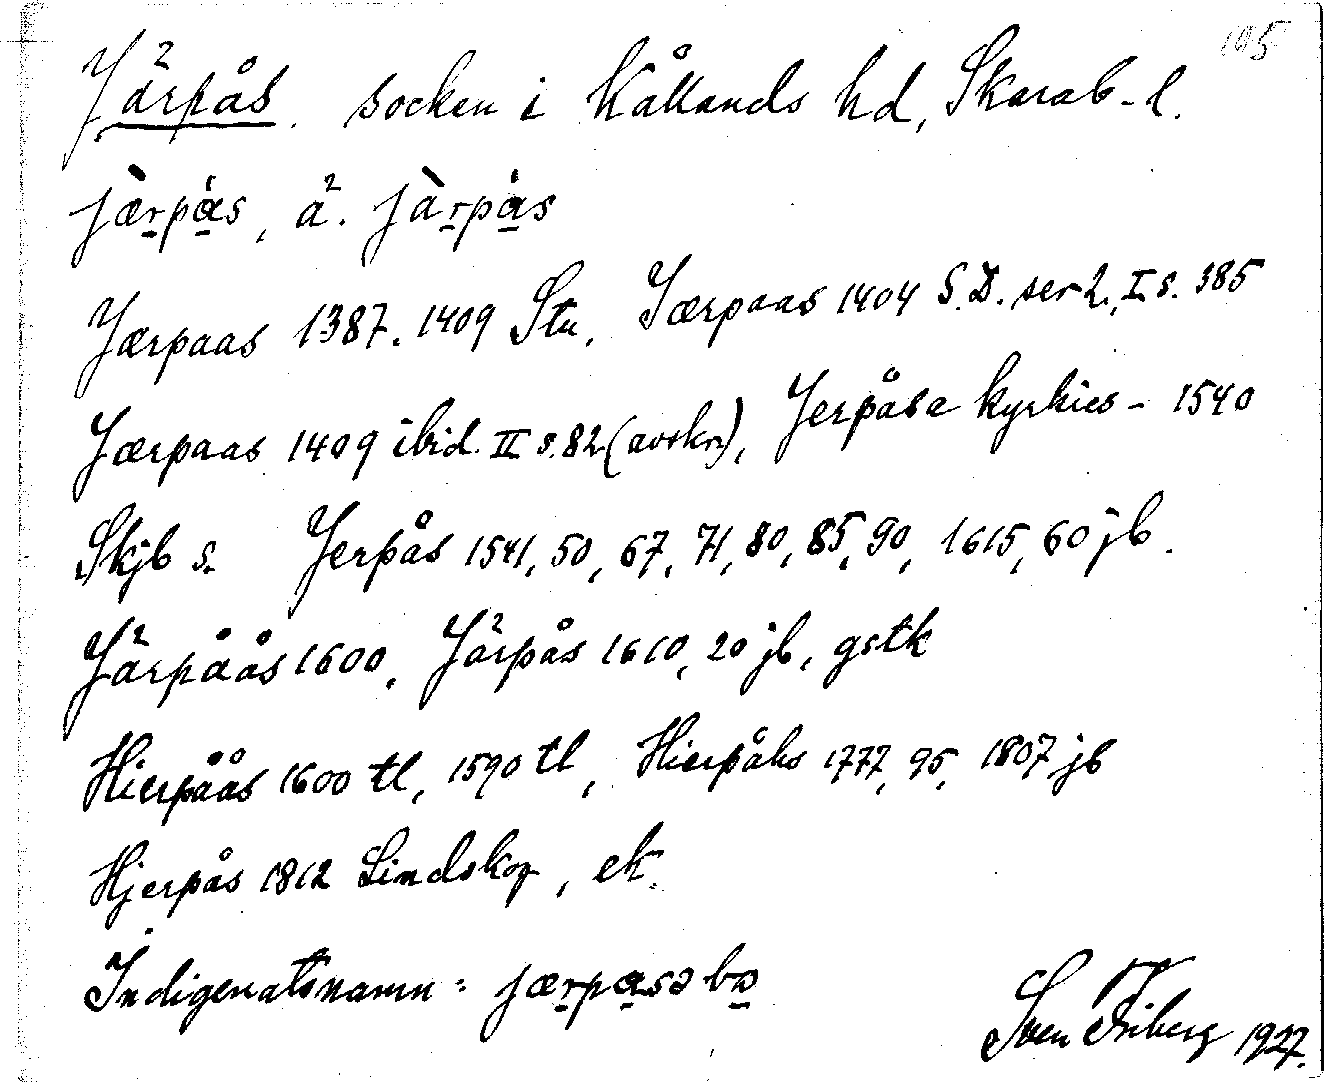 195
Järpås. socken i Kållands hd, Skarab-l.
jæ̀rpás, ä. jàrpás
Jærpaas 1387. 1409 Stu. Jærpaas 1404 S.D. ser 2, I s. 385
Jærpaas 1409 ibid. II s. 82 (avskr), Jerpåsa kyrkies - 1540
Skjb s. Jerpås 1541, 50, 67, 71, 80, 85, 90, 1615, 60 jb.
Järpåås 1600, Järpås 1610, 20 jb, gstk
Hierpåås 1600 tl, 1590 tl, Hierpåhs 1777, 95, 1807 jb
Hjerpås 1812 Lindskog, ek.
Indigenatsnamn: jærpasəbo
Sven Friberg 1927.